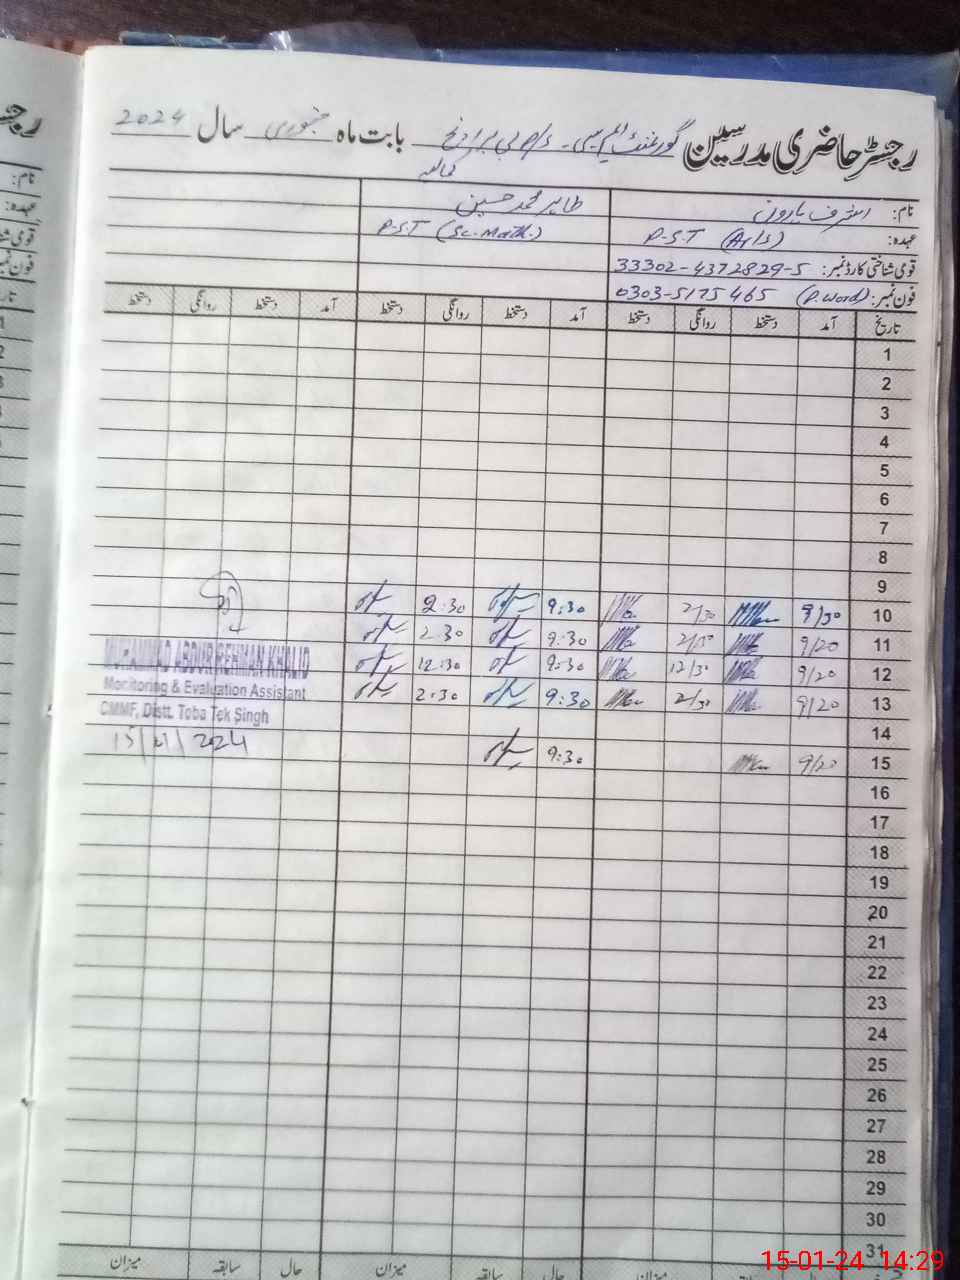 رجسٹر حاضری مدرسین گورنمنٹ ایم سی بابت ماہ جنوری سال 2024
نام: اشرف ہارون طاہر محمد حسین
عہدہ: P.S.T (Arts) P.S.T (Sc.Math.)
قومی شناختی کارڈ نمبر: 33302-4372829-5
فون نمبر: 0303-5175465 (P.Word)
تاریخ آمد دستخط روانگی دستخط آمد دستخط روانگی دستخط آمد دستخط روانگی دستخط
1
2
3
4
5
6
7
8
9
10 9/30 2/30 9:30 2:30
11 9/20 2/30 9:30 2:30
12 9/20 12/30 9:30 12:30
13 9/20 2/30 9:30 2:30
14
15 9/20 9:30
MUHAMMAD ABDUR REHMAN KHALID
Monitoring & Evaluation Assistant
CMMF, Distt. Toba Tek Singh
15/01/2024
16
17
18
19
20
21
22
23
24
25
26
27
28
29
30
31
حال سابقہ میزان حال سابقہ میزان
15-01-24 14:29